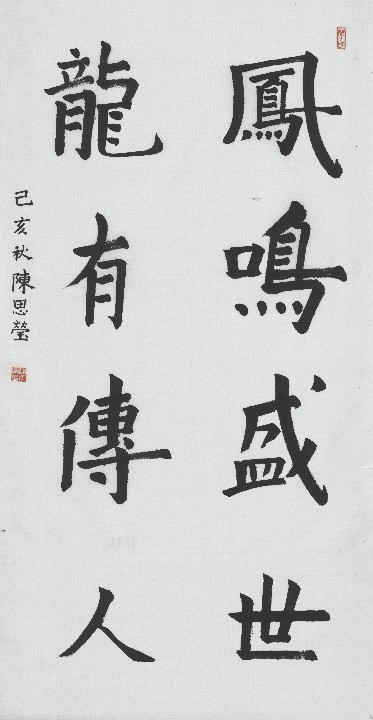 鳳鳴盛世
龍有傳人
己亥秋陳思瑩